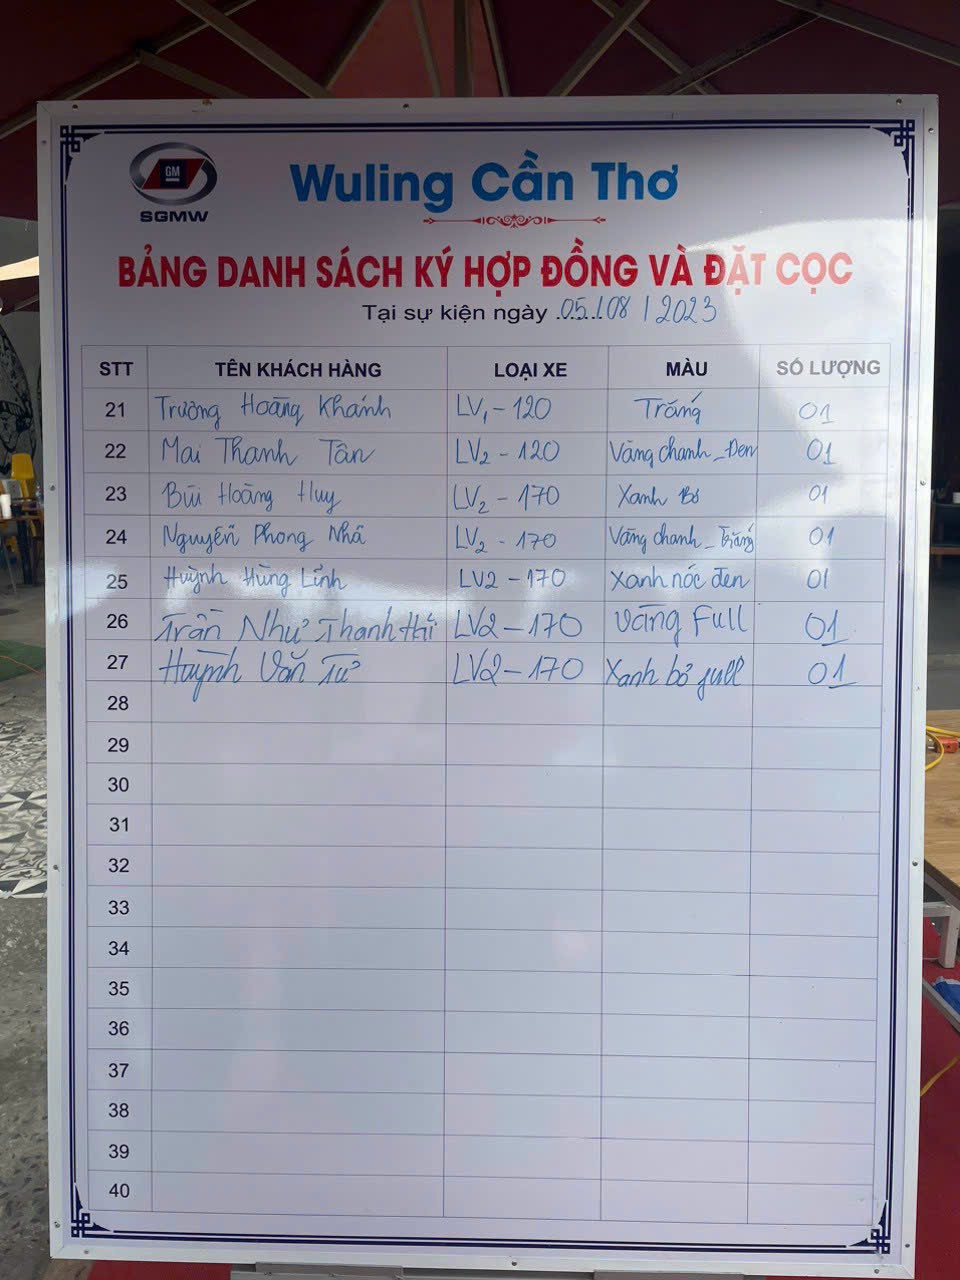 GM
SGMW
Wuling Cần Thơ
BẢNG DANH SÁCH KÝ HỢP ĐỒNG VÀ ĐẶT CỌC
Tại sự kiện ngày 05/08/2023
STT TÊN KHÁCH HÀNG LOẠI XE MÀU SỐ LƯỢNG
21 Trương Hoàng Khánh LV1-120 Trắng 01
22 Mai Thanh Tân LV2-120 Vàng chanh-Đen 01
23 Bùi Hoàng Huy LV2-170 Xanh Bơ 01
24 Nguyễn Phong Nhã LV2-170 Vàng chanh-Trắng 01
25 Huỳnh Hùng Lĩnh LV2-170 Xanh nóc đen 01
26 Trần Như Thanh Hải LV2-170 Vàng Full 01
27 Huỳnh Văn Tư LV2-170 Xanh bơ full 01
28
29
30
31
32
33
34
35
36
37
38
39
40